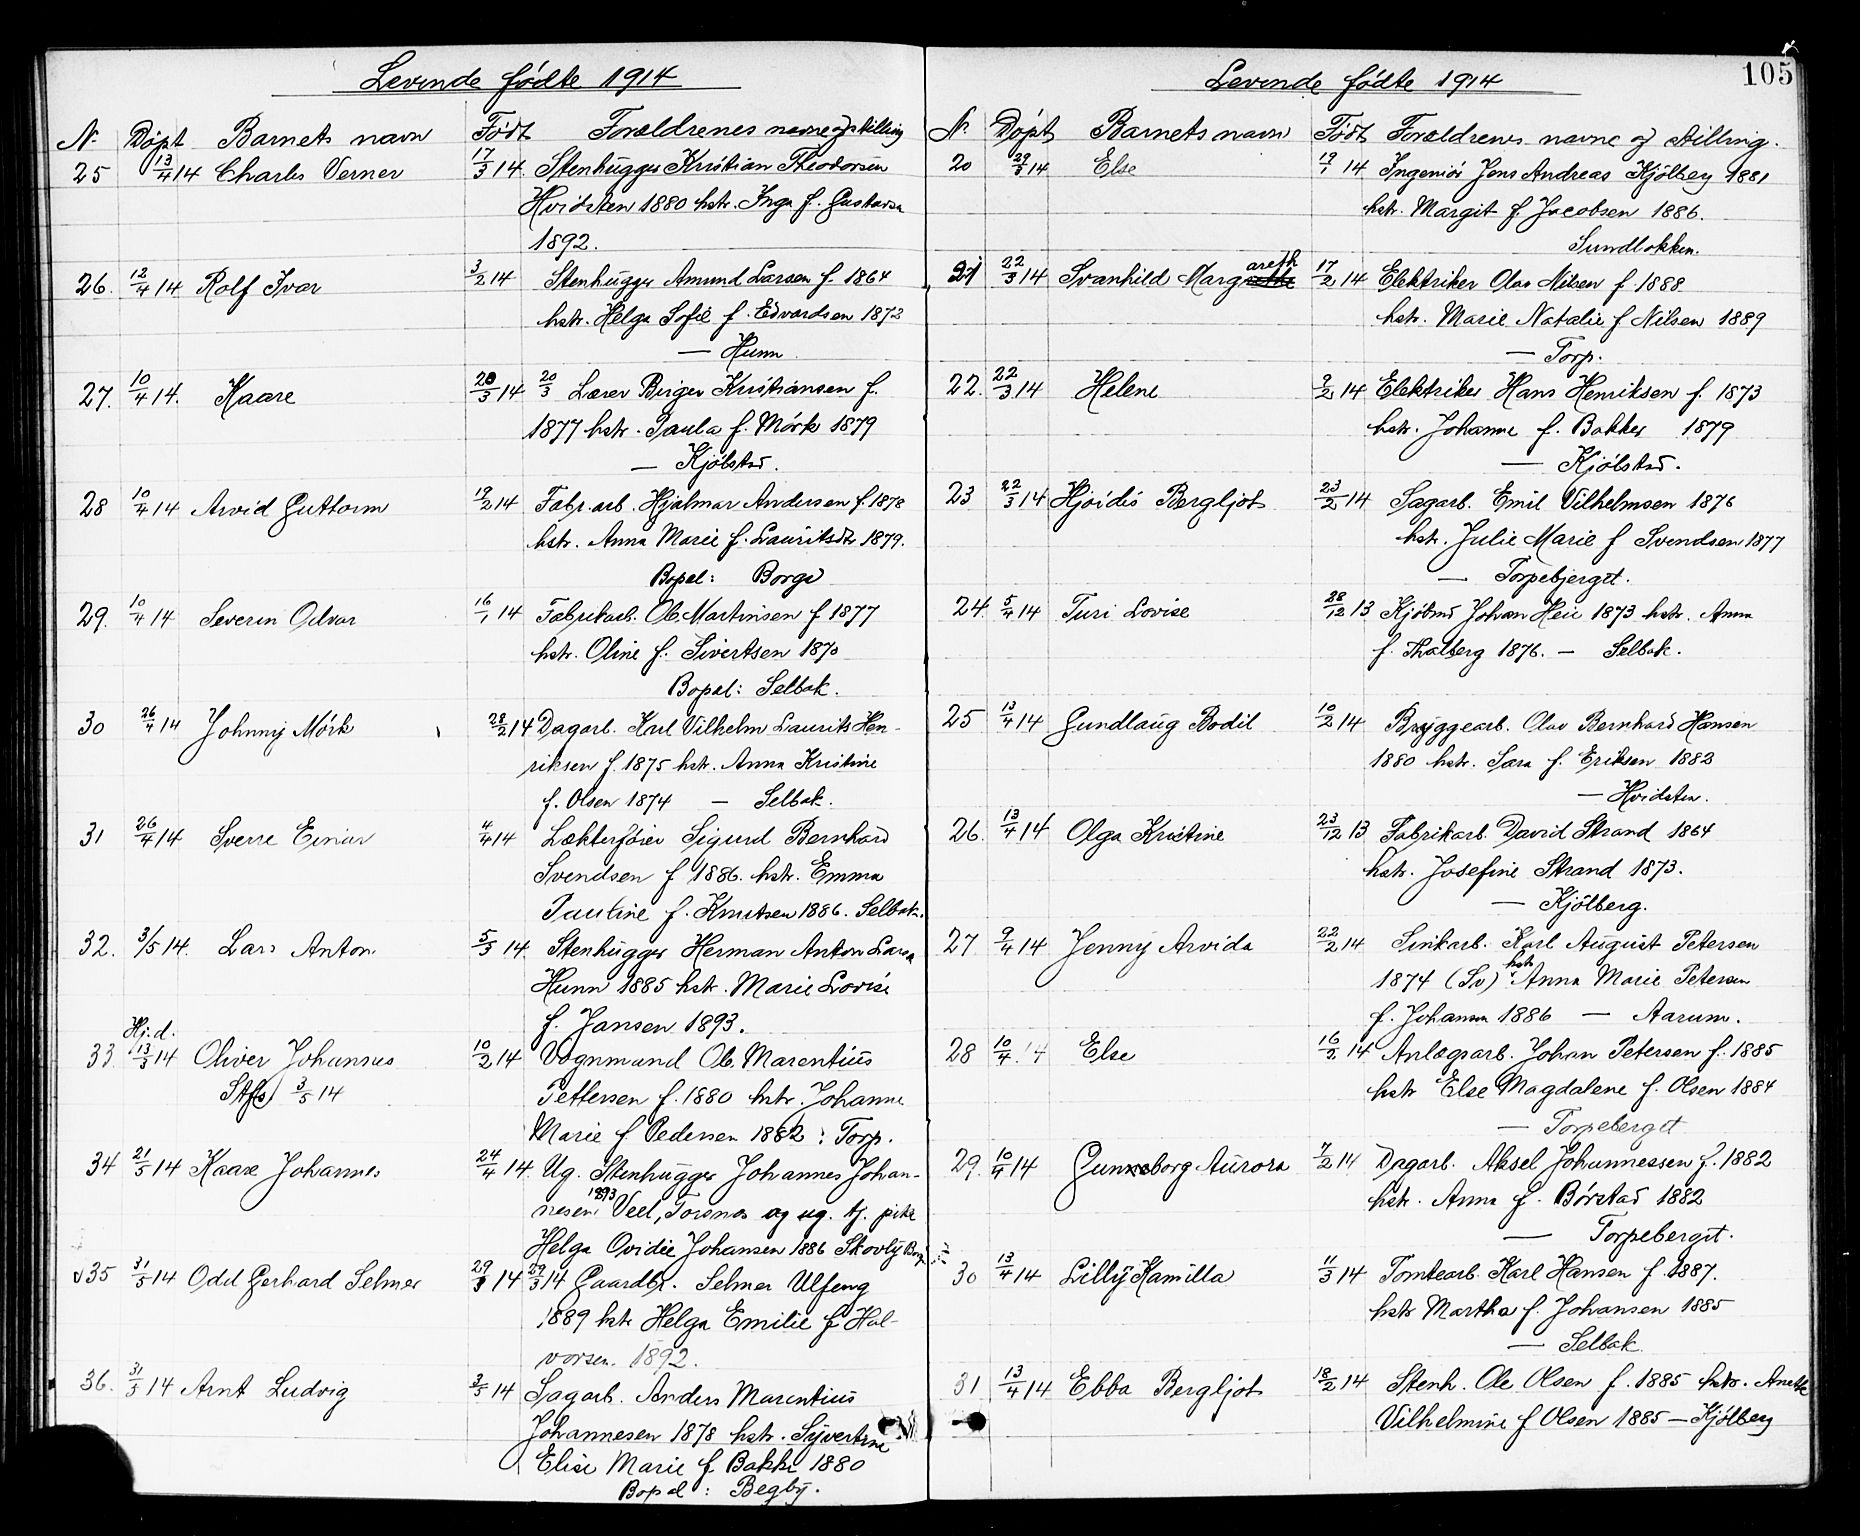 Levende fødte 1914
N. Døpt Barnets navn Født Forældrenes navne og stilling
25 13/4 14 Charles Verner 17/3 14. Stenhugger Kristian Theodorsen
Hvidsten 1880 hstr. Inga f. Gustavsen
1892.
26. 12/4 14 Rolf Ivar 3/2 14 Stenhugger Amund Larsen f. 1864
hstr. Helga Sofie f. Edvardsen 1873
— Hunn
27. 10/4 14. Kaare 20/3 14 20/3 Lærer Birger Kristiansen f.
1877 hstr. Paula f. Mørk 1879
— Kjølstad.
28 10/4 14 Arvid Guttorm 19/2 14 Fabr.arb. Hjalmar Andersen f. 1878
hstr. Anna Marie f. Lauritsdtr 1879.
Bopæl: Borge
29. 10/4 14 Severin Odvar 16/1 14 Fabrikarb. Ole Martinsen f 1877
hstr. Oline f. Sivertsen 1870
Bopæl: Selbak.
30 26/4 14 Johnny Mørk 28/2 14 Dagarb. Karl Vilhelm Laurits Hen-
riksen f. 1875 hstr. Anna Kristine
f. Olsen 1874 — Selbak.
31 26/4 14 Sverre Einar 4/4 14 Lækterfører Sigurd Bernhard
Svendsen f 1886. hstr. Emma
Pauline f. Knutsen 1886. Selbak.
32. 3/5 14. Lars Anton 5/3 14. Stenhugger Herman Anton Larsen
Hunn 1885 hstr. Marie Lovise
f. Jansen 1893.
Hj.d.
33. 13/3 14 Oliver Johannes 10/2 14 Vognmand Ole Marentius
Stfs 3/5 14 Pettersen f. 1880 hstr. Johanne
Marie f. Pedersen 1882 : Torp.
34 21/5 14 Kaare Johannes 24/4 14. Ug. Stenhugger Johannes Johan-
nesen 1893 Veel, Torsnes og ug. tj. pike
Helga Ovidie Johansen 1886 Skovly Borge
35 31/5 14 Odd Gerhard Selmer 29/3 14 29/3 14 Gaardbr. Selmer Ulfeng
1889 hstr Helga Emilie f Hal-
vorsen. 1892.
36. 31/5 14 Arnt Ludvig 3/5 14 Sagarb. Anders Marentius
Johannesen 1878 hstr. Syvertine
Elise Marie f Bakke 1880
Bopæl: Begby.
105
Levende fødte 1914
N. Døpt Barnets navn Født Forældrenes navne og stilling.
20 29/3 14 Else 19/1 14 Ingeniør Jens Andreas Kjølberg 1881
hstr. Margit f Jacobsen 1886.
Sundløkken.
21 22/3 14 Svanhild Margareth 17/2 14 Elektriker Olav Nilsen f 1888
hstr. Marie Natalie f Nilsen 1889
— Torp.
22. 22/3 14 Helene 9/2 14 Elektriker Hans Henriksen f. 1873
hstr. Johanne f. Bakker 1879
— Kjølstad.
23 22/3 14 Hjørdis Bergljot 23/2 14 Sagarb. Emil Vilhelmsen 1876
hstr. Julie Marie f Svendsen 1877
— Torpebjerget.
24. 5/4 14 Turi Lovise 28/12 13 Kjøbmd Johan Heie 1873 hstr. Anna
f. Thalberg 1876. — Selbak.
25 13/4 14 Gundlaug Bodil 10/2 14 Bryggearb. Olav Bernhard Hansen
1880 hstr. Sara f. Eriksen 1882
— Hvidsten.
26. 13/4 14 Olga Kristine 23/12 13 Fabrikarb. David Strand 1864
hstr. Josefine Strand 1873.
— Kjølberg.
27 9/4 14 Jenny Arvida 22/2 14 Sinkarb. Karl August Petersen
1874 (Sv) hstr Anna Marie Petersen
f. Johansen 1886 — Aarum.
28 10/4 14 Else 16/2 14 Anlægsarb. Johan Petersen f. 1885
hstr Else Magdalene f. Olsen 1884
— Torpeberget
29. 10/4 14 Gunneborg Aurora 7/2 14 Dagarb. Aksel Johannessen f. 1882
hstr. Anna f. Børstad 1882
— Torpeberget.
30 13/4 14 Lilly Kamilla 11/3 14 Tomtearb. Karl Hansen f. 1887.
hstr Martha f. Johansen 1885
— Selbak
31 13/4 14 Ebba Bergljot 18/2 14 Stenh. Ole Olsen f. 1885 hstr. Anette
Vilhelmine f Olsen 1885 — Kjølberg